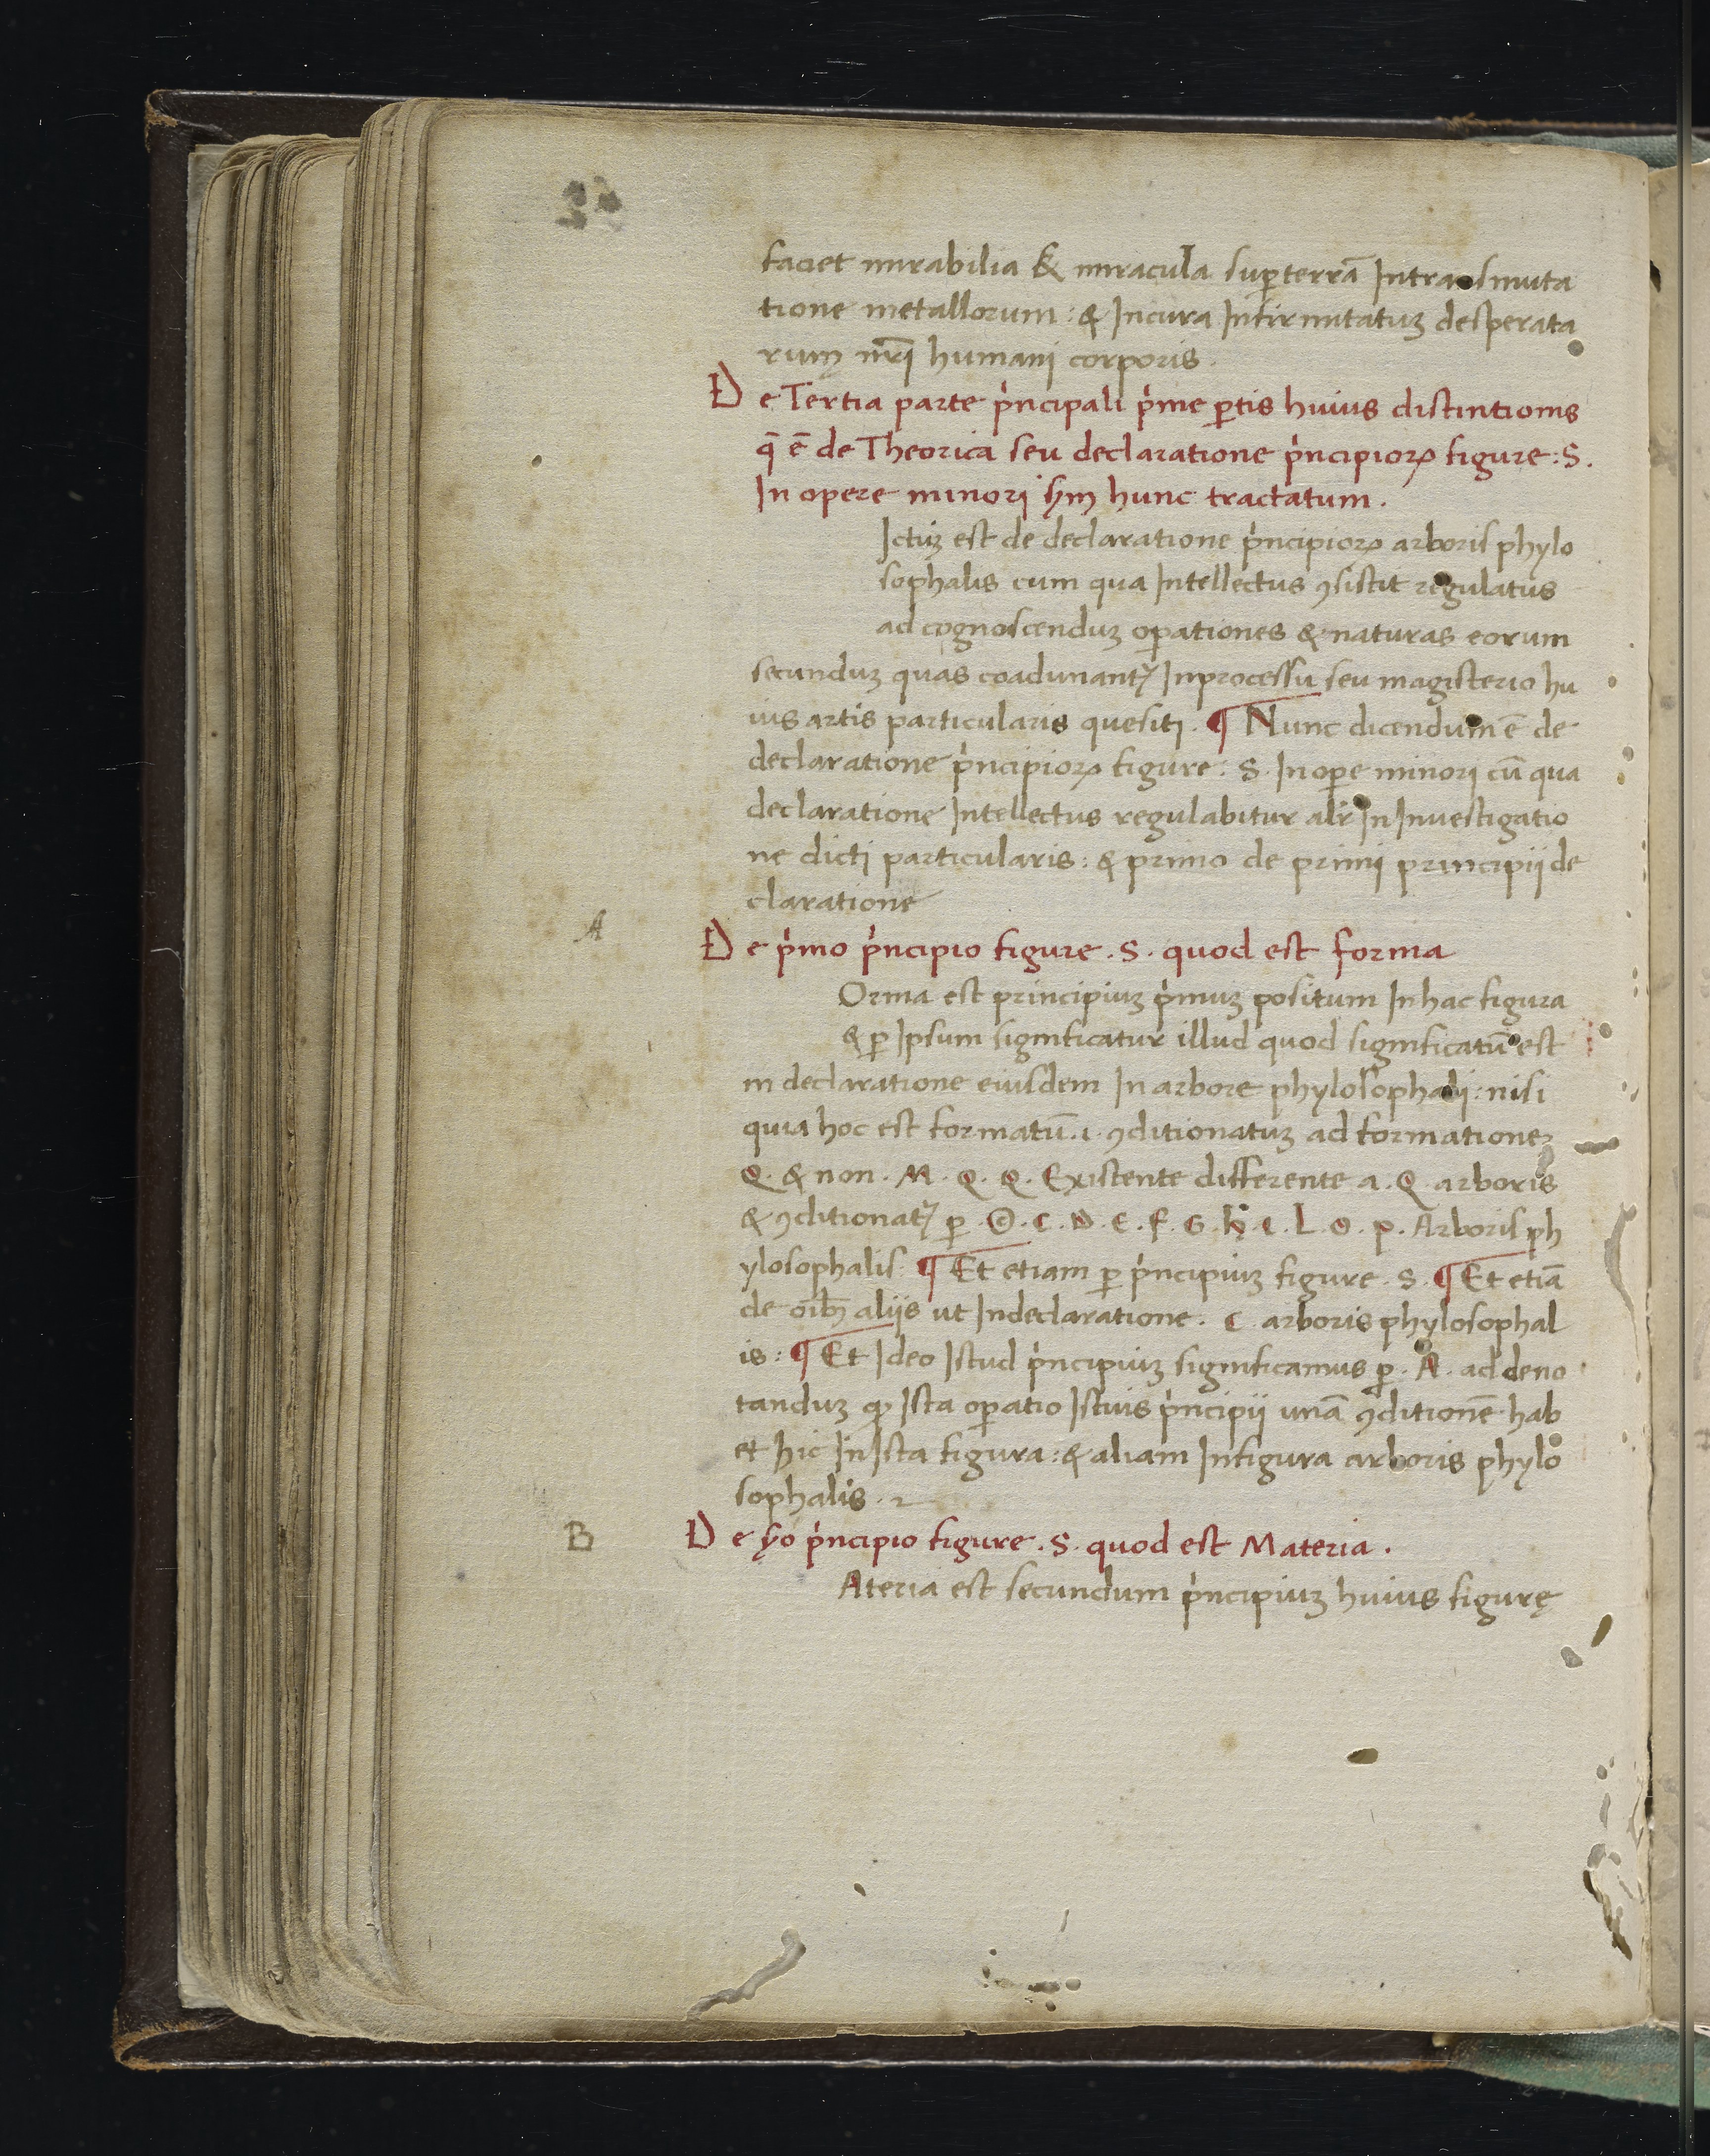 faciet mirabilia & miracula sup terrā Intransmuta
tione metallorum: & Incura Infirmitatuz desperata
rum nr̄i humani corporis.
De Tertia parte pncipali pme ptis huius distintionis
q̄ ē de Theorica seu declaratione pncipioꝝ figure: S.
In opere minori sm hunc tractatum.
Ictuz est de declaratione pncipioꝝ arboris phylo
sophalis cum qua Intellectus ꝯsistit regulatus
ad cognoscenduz opationes & naturas eorum
secunduz quas coadunant Inprocessu seu magisterio hu
ius artis particularis quesiti. ¶ Nunc dicendum ē de
declaratione pncipioꝝ figure: S. In ope minori cū qua
declaratione Intellectus regulabitur alr In Inuestigatio
ne dicti particularis: & primo de primi principij de
claratione
A
De pmo pncipio figure. S. quod est forma
Orma est principiuz pmuz positum In hac figura
& ꝑ Ipsum significatur illud quod significatū est
in declaratione eiusdem In arbore phylosophali: nisi
quia hoc est formatū. i. ꝯditionatuz ad formationez
Q. & non. M. Q. Q. Existente differente a. Q. arboris
& ꝯditionat ꝑ. C. D. E. F. G. h. L. O. P. Arboris ph
ylosophalis. ¶ Et etiam ꝑ pncipiuz figure. S. ¶ Et etiā
de oībꝫ alijs ut Indeclaratione. C. arboris phylosophal
is: ¶ Et Ideo Istud pncipiuz significamus ꝑ. A. ad deno
tanduz ꝙ Ista opatio Istius pncipij unā ꝯditionē hab
et hic In Ista figura: & aliam Infigura arboris phylo
sophalis.
B
De 2o pncipio figure. S. quod est Materia.
Ateria est secundum pncipiuz huius figurę